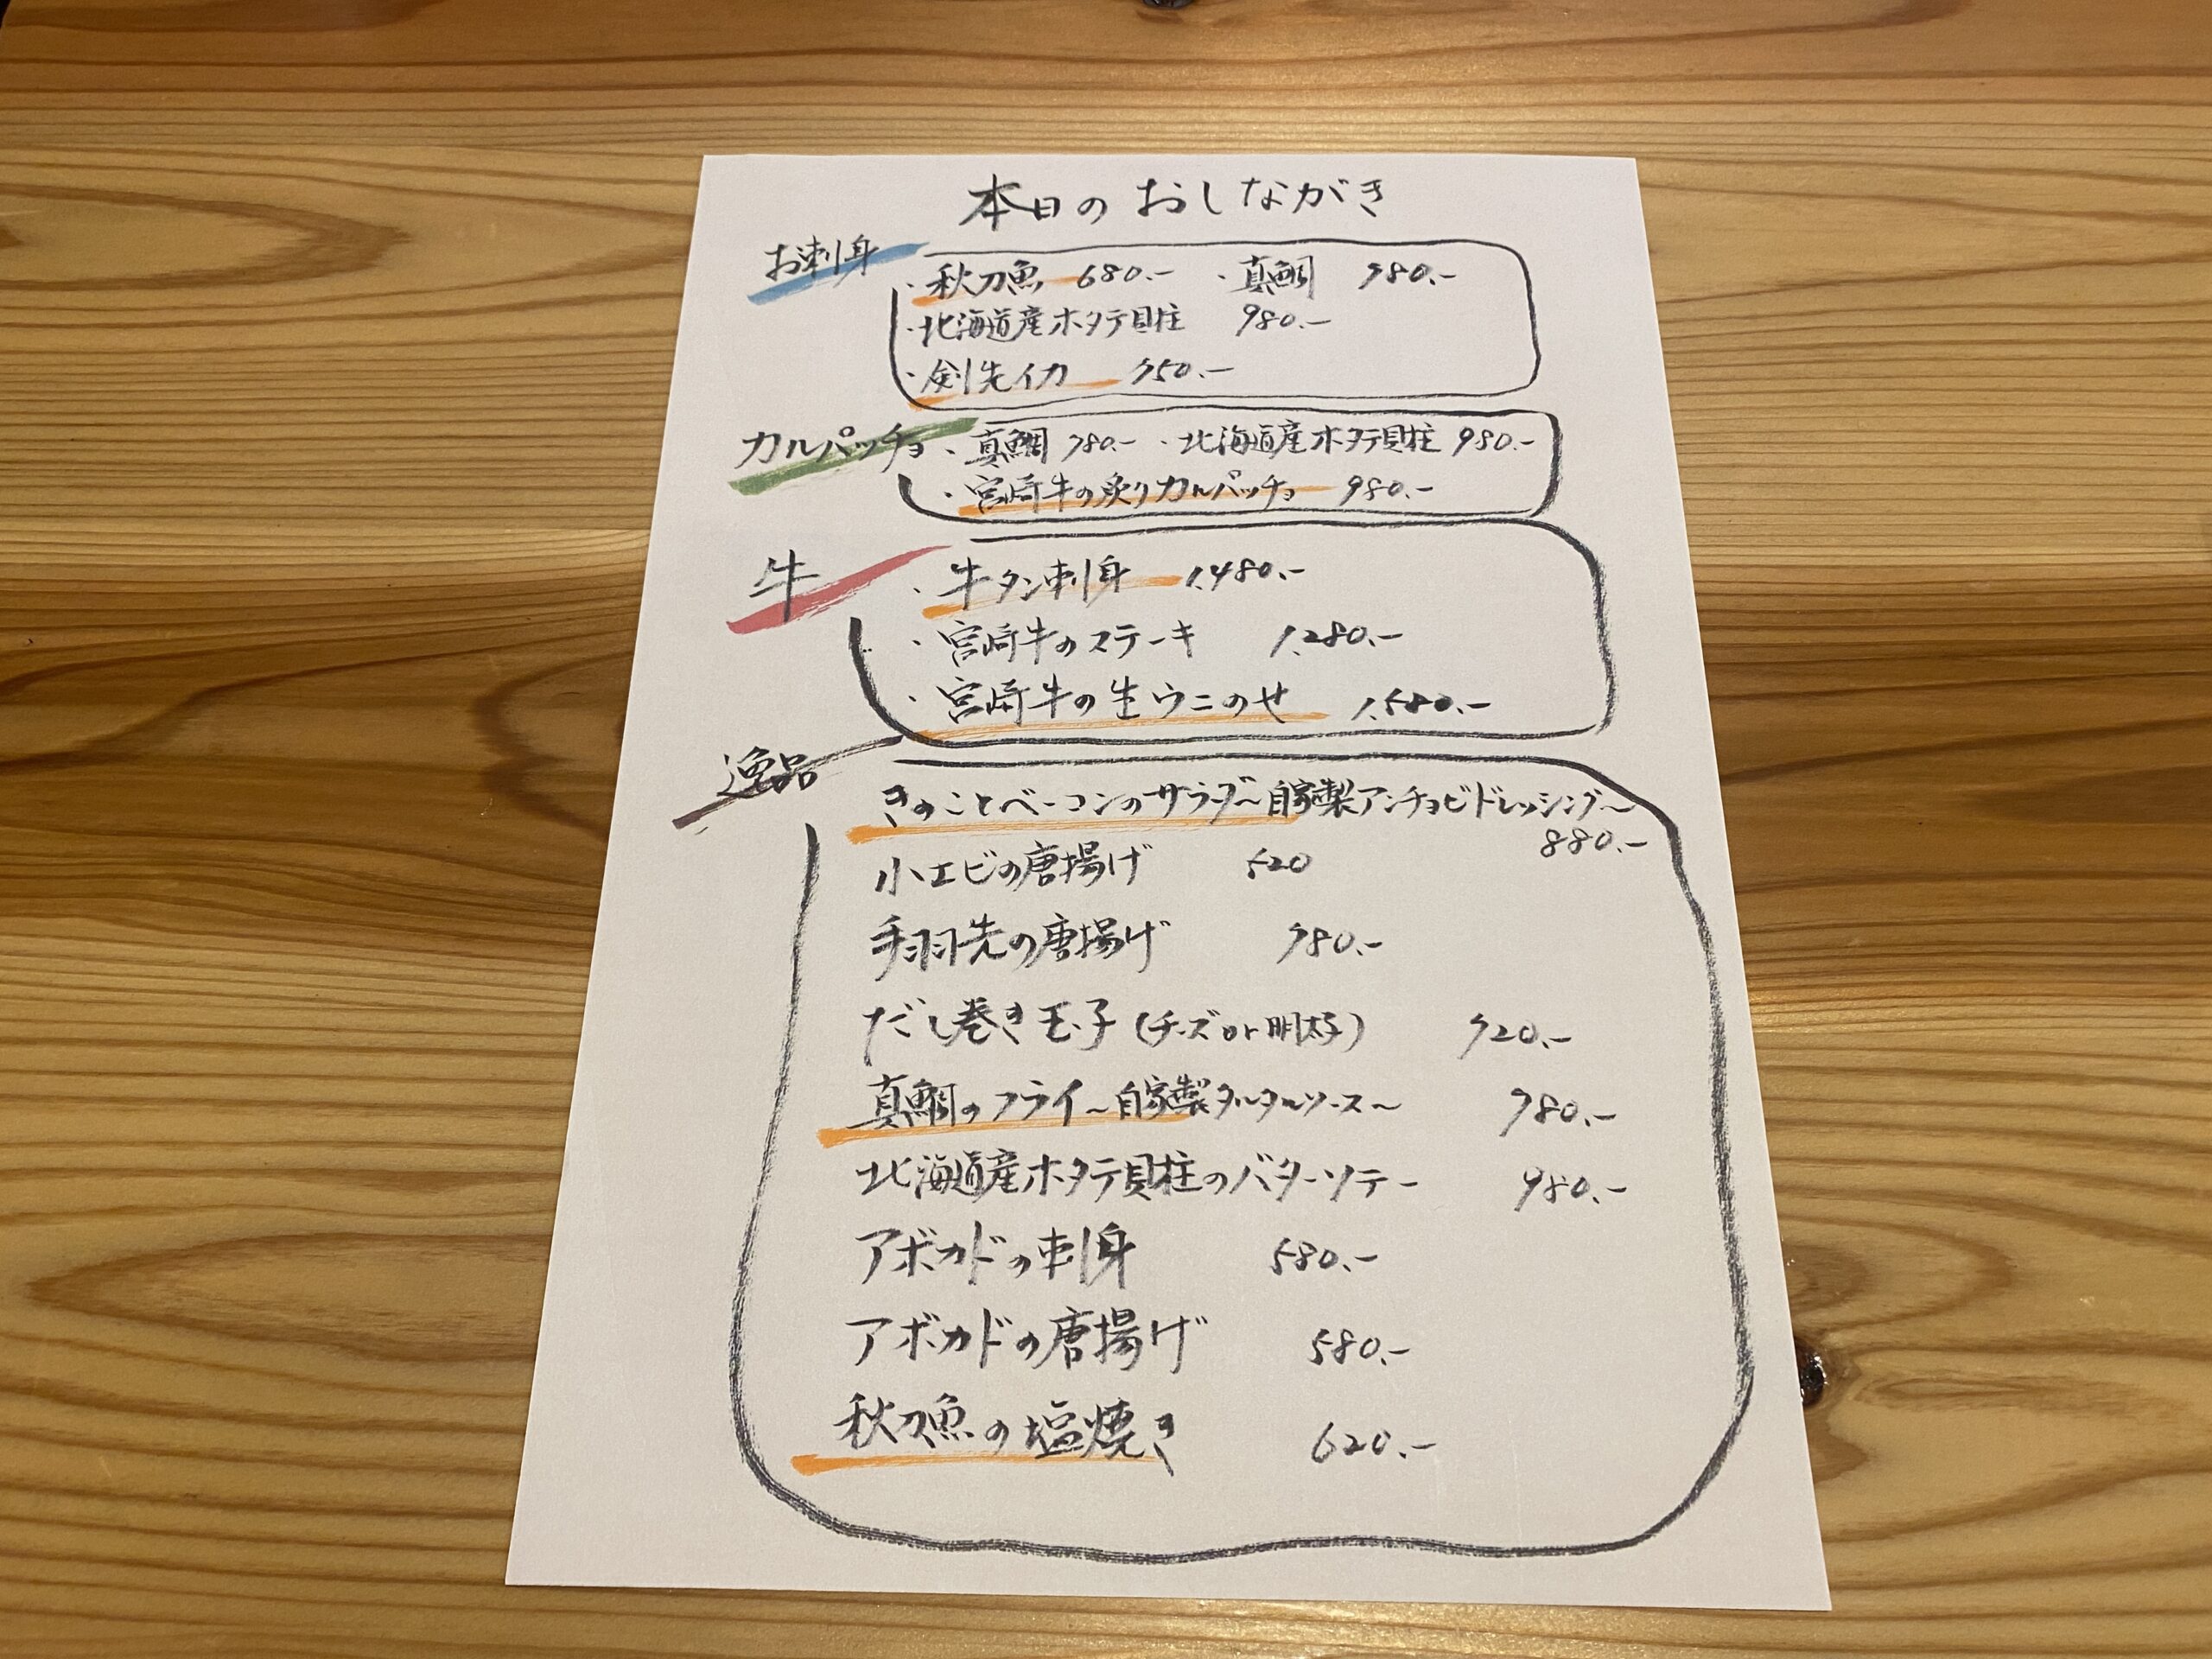 本日のおしながき
お刺身
・秋刀魚 680.- ・真鯛 780.-
・北海道産ホタテ貝柱 980.-
・剣先イカ 750.-
カルパッチョ
・真鯛 780.- ・北海道産ホタテ貝柱 980.-
・宮崎牛の炙りカルパッチョ 980.-
牛
・牛タン刺身 1,480.-
・宮崎牛のステーキ 1,280.-
・宮崎牛の生ウニのせ 1,580.-
逸品
きのことベーコンのサラダ~自家製アンチョビドレッシング~
880.-
小エビの唐揚げ 520
手羽先の唐揚げ 780.-
だし巻き玉子(チーズor明太子) 720.-
真鯛のフライ~自家製タルタルソース~ 780.-
北海道産ホタテ貝柱のバターソテー 980.-
アボカドの刺身 580.-
アボカドの唐揚げ 580.-
秋刀魚の塩焼き 620.-